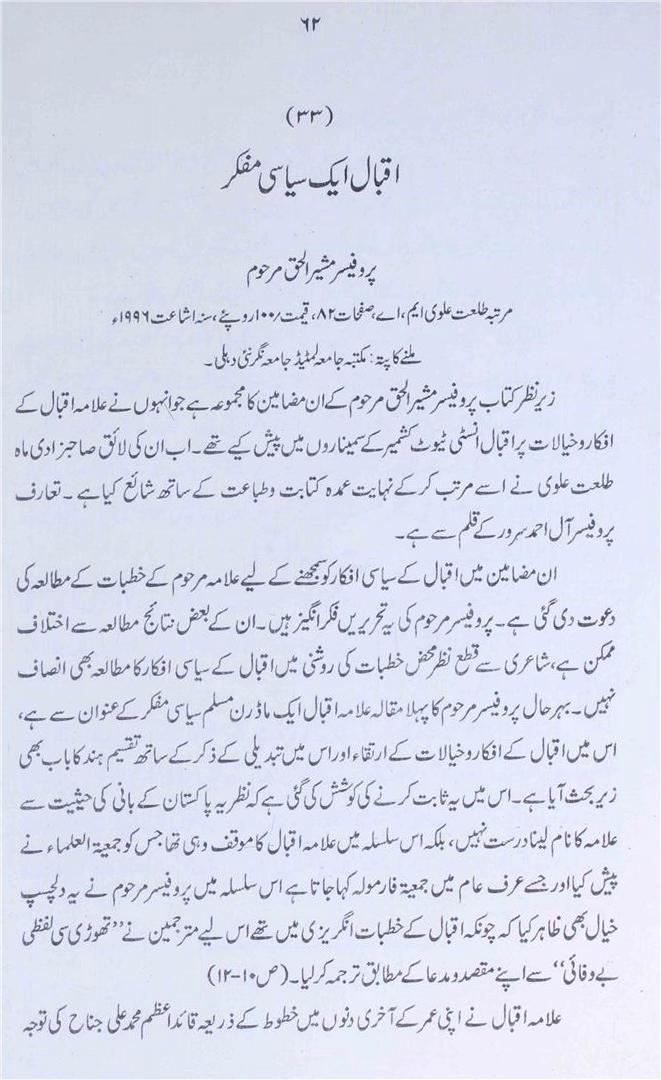 ۶۲
(۳۳)
اقبال ایک سیاسی مفکر
پروفیسر مشیر الحق مرحوم
مرتبہ طلعت علوی ایم، اے، صفحات ۸۲، قیمت/۱۰۰ روپئے، سنہ اشاعت ۱۹۹۶ء
ملنے کا پتہ: مکتبہ جامعہ لمٹیڈ جامعہ نگر نئی دہلی۔
زیر نظر کتاب پروفیسر مشیر الحق مرحوم کے ان مضامین کا مجموعہ ہے جو انہوں نے علامہ اقبال کے
افکار و خیالات پر اقبال انسٹی ٹیوٹ کشمیر کے سمیناروں میں پیش کیے تھے۔ اب ان کی لائق صاحبزادی ماہ
طلعت علوی نے اسے مرتب کر کے نہایت عمدہ کتابت و طباعت کے ساتھ شائع کیا ہے۔ تعارف
پروفیسر آل احمد سرور کے قلم سے ہے۔
ان مضامین میں اقبال کے سیاسی افکار کو سمجھنے کے لیے علامہ مرحوم کے خطبات کے مطالعہ کی
دعوت دی گئی ہے۔ پروفیسر مرحوم کی یہ تحریریں فکر انگیز ہیں۔ ان کے بعض نتائج مطالعہ سے اختلاف
ممکن ہے، شاعری سے قطع نظر محض خطبات کی روشنی میں اقبال کے سیاسی افکار کا مطالعہ بھی انصاف
نہیں۔ بہر حال پروفیسر مرحوم کا پہلا مقالہ علامہ اقبال ایک ماڈرن مسلم سیاسی مفکر کے عنوان سے ہے،
اس میں اقبال کے افکار و خیالات کے ارتقاء اور اس میں تبدیلی کے ذکر کے ساتھ تقسیم ہند کا باب بھی
زیر بحث آیا ہے۔ اس میں یہ ثابت کرنے کی کوشش کی گئی ہے کہ نظریہ پاکستان کے بانی کی حیثیت سے
علامہ کا نام لینا درست نہیں، بلکہ اس سلسلہ میں علامہ اقبال کا موقف وہی تھا جس کو جمعیۃ العلماء نے
پیش کیا اور جسے عرف عام میں جمعیۃ فارمولہ کہا جاتا ہے اس سلسلہ میں پروفیسر مرحوم نے یہ دلچسپ
خیال بھی ظاہر کیا کہ چونکہ اقبال کے خطبات انگریزی میں تھے اس لیے مترجمین نے ’’تھوڑی سی لفظی
بے وفائی‘‘ سے اپنے مقصد و مدعا کے مطابق ترجمہ کر لیا۔ (ص۱۰-۱۲)
علامہ اقبال نے اپنی عمر کے آخری دنوں میں خطوط کے ذریعہ قائد اعظم محمد علی جناح کی توجہ